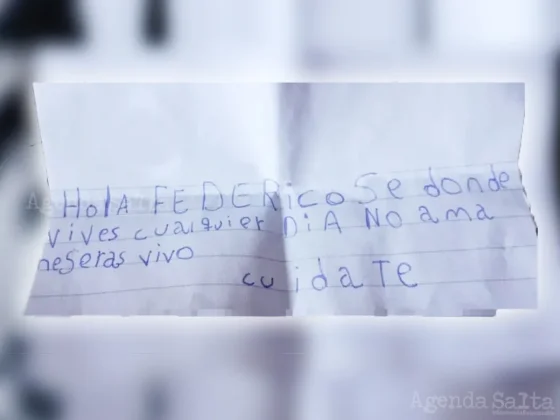 HolA FEDERico Se donde
vives cualquier DiA No ama
neSeras vivo
cuidaTe
Agenda Salta